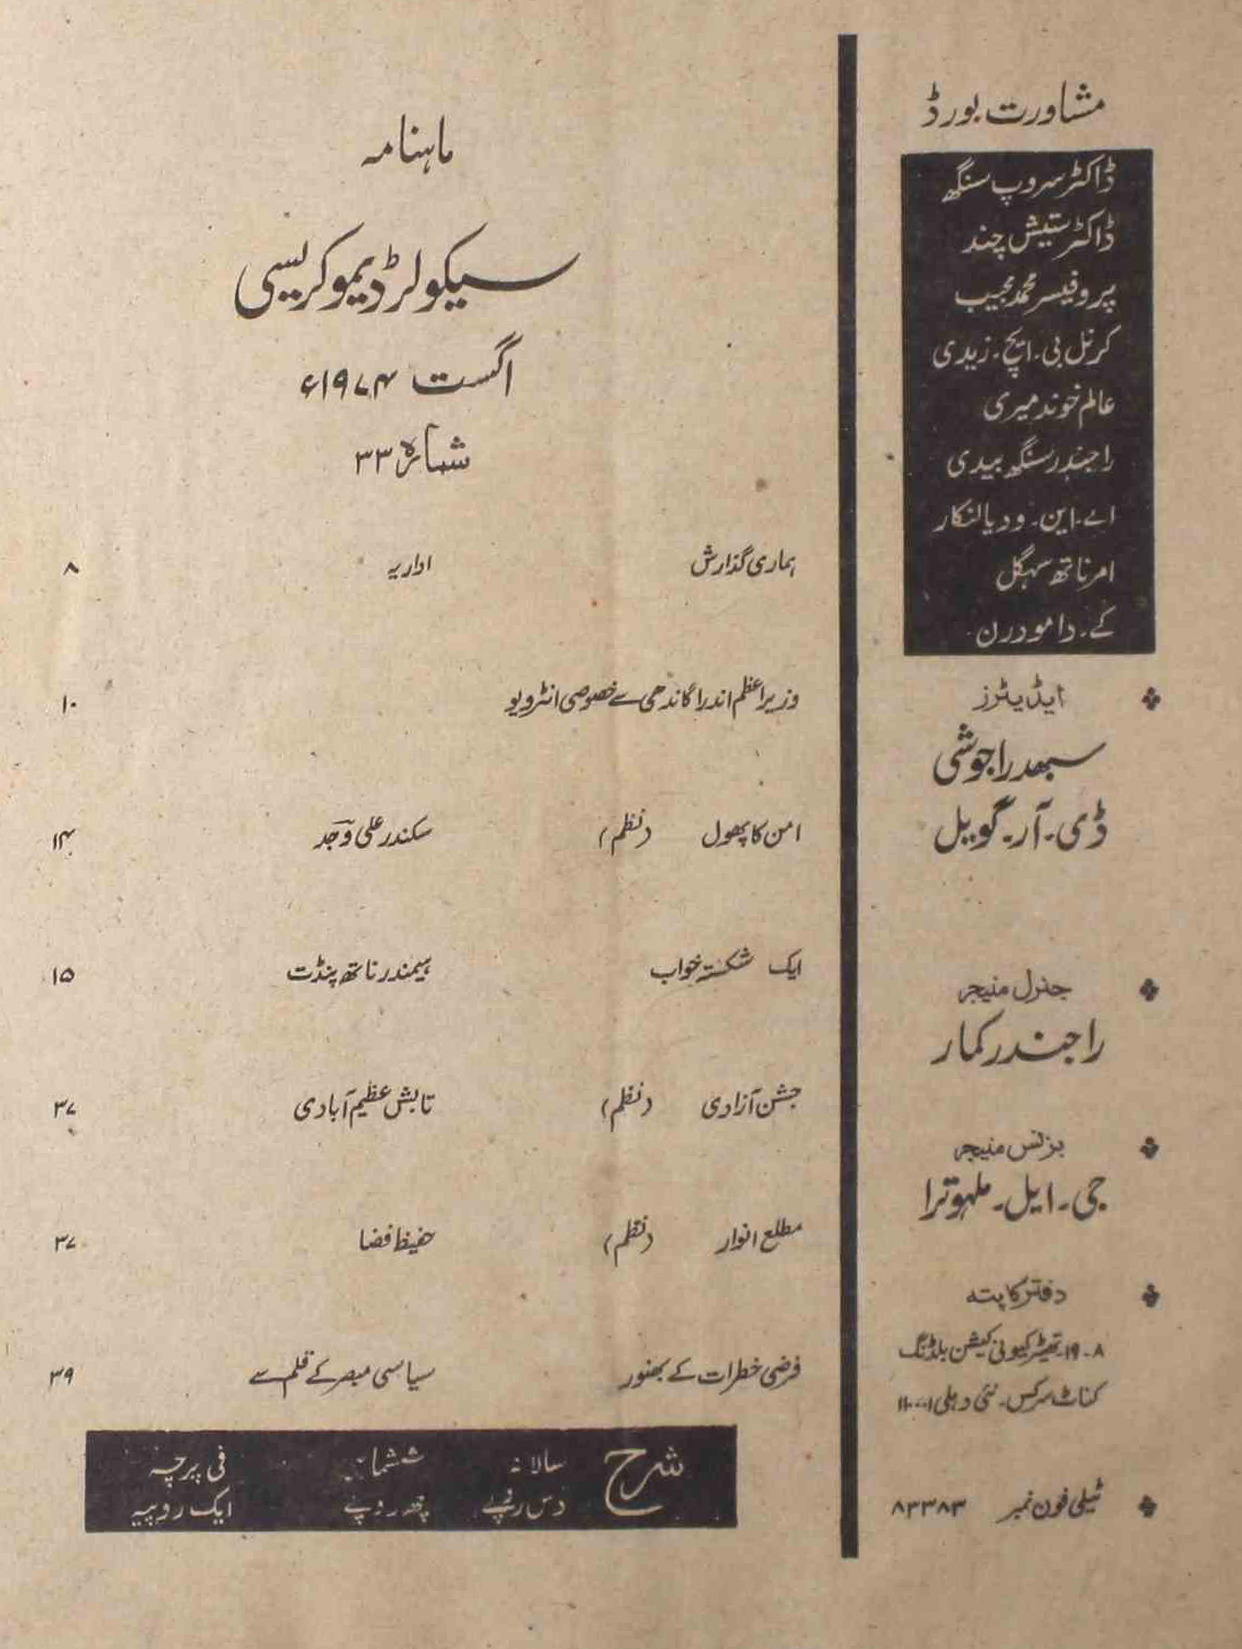 مشاورت بورڈ
ڈاکٹر سروپ سنگھ
ڈاکٹر ستیش چند
پروفیسر محمد مجیب
کرنل بی۔ ایچ۔ زیدی
عالم خوندمیری
راجندر سنگھ بیدی
اے۔ این۔ ودیالنکار
امرناتھ سہگل
کے۔ دامودرن
ایڈیٹرز
سبھدرا جوشی
ڈی۔ آر۔ گویل
جنرل منیجر
راجندر کمار
بزنس منیجر
جی۔ ایل۔ ملہوترا
دفتر کا پتہ
۸-۱۹۔ تھیٹر کمیونی کیشن بلڈنگ
کناٹ سرکس۔ نئی دہلی ۱۱۰۰۰۱
ٹیلی فون نمبر ۸۳۳۸۳
ماہنامہ
سیکولر ڈیموکریسی
اگست ۱۹۷۴ء
شمارہ ۳۳
ہماری گذارش اداریہ ۸
وزیراعظم اندرا گاندھی سے خصوصی انٹرویو ۱۰
امن کا پھول (نظم) سکندر علی وجد ۱۴
ایک شکستہ خواب ہیمندر ناتھ پنڈت ۱۵
جشن آزادی (نظم) تابش عظیم آبادی ۳۷
مطلع انوار (نظم) حفیظ فضا ۳۷
فرضی خطرات کے بھنور سیاسی مبصر کے قلم سے ۳۹
شرح سالانہ ششماہی فی پرچہ
دس روپے چھ روپے ایک روپیہ